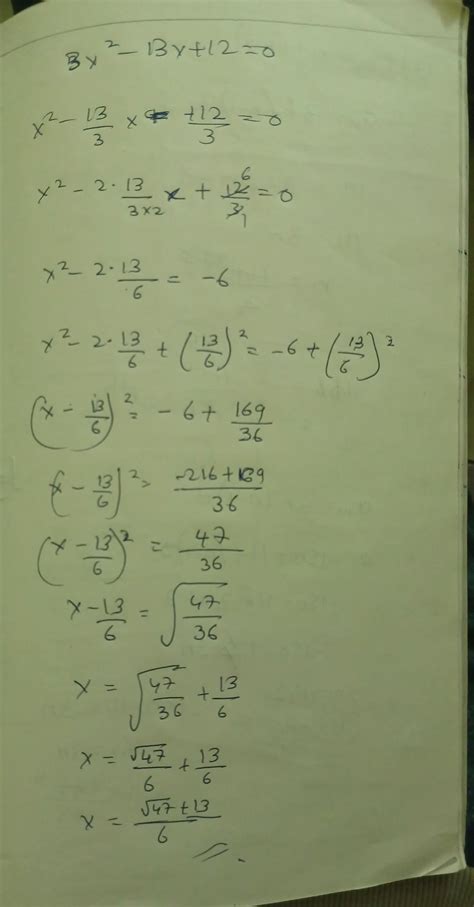 3x² - 13x + 12 = 0
x² - 13/3 x + 12/3 = 0
x² - 2·13/3×2 x + 12/3 6/1 = 0
x² - 2·13/6 = -6
x² - 2·13/6 + (13/6)² = -6 + (13/6)²
(x - 13/6)² = -6 + 169/36
(x - 13/6)² = -216+169/36
(x - 13/6)² = 47/36
x - 13/6 = √47/36
x = √47/36 + 13/6
x = √47/6 + 13/6
x = √47+13/6